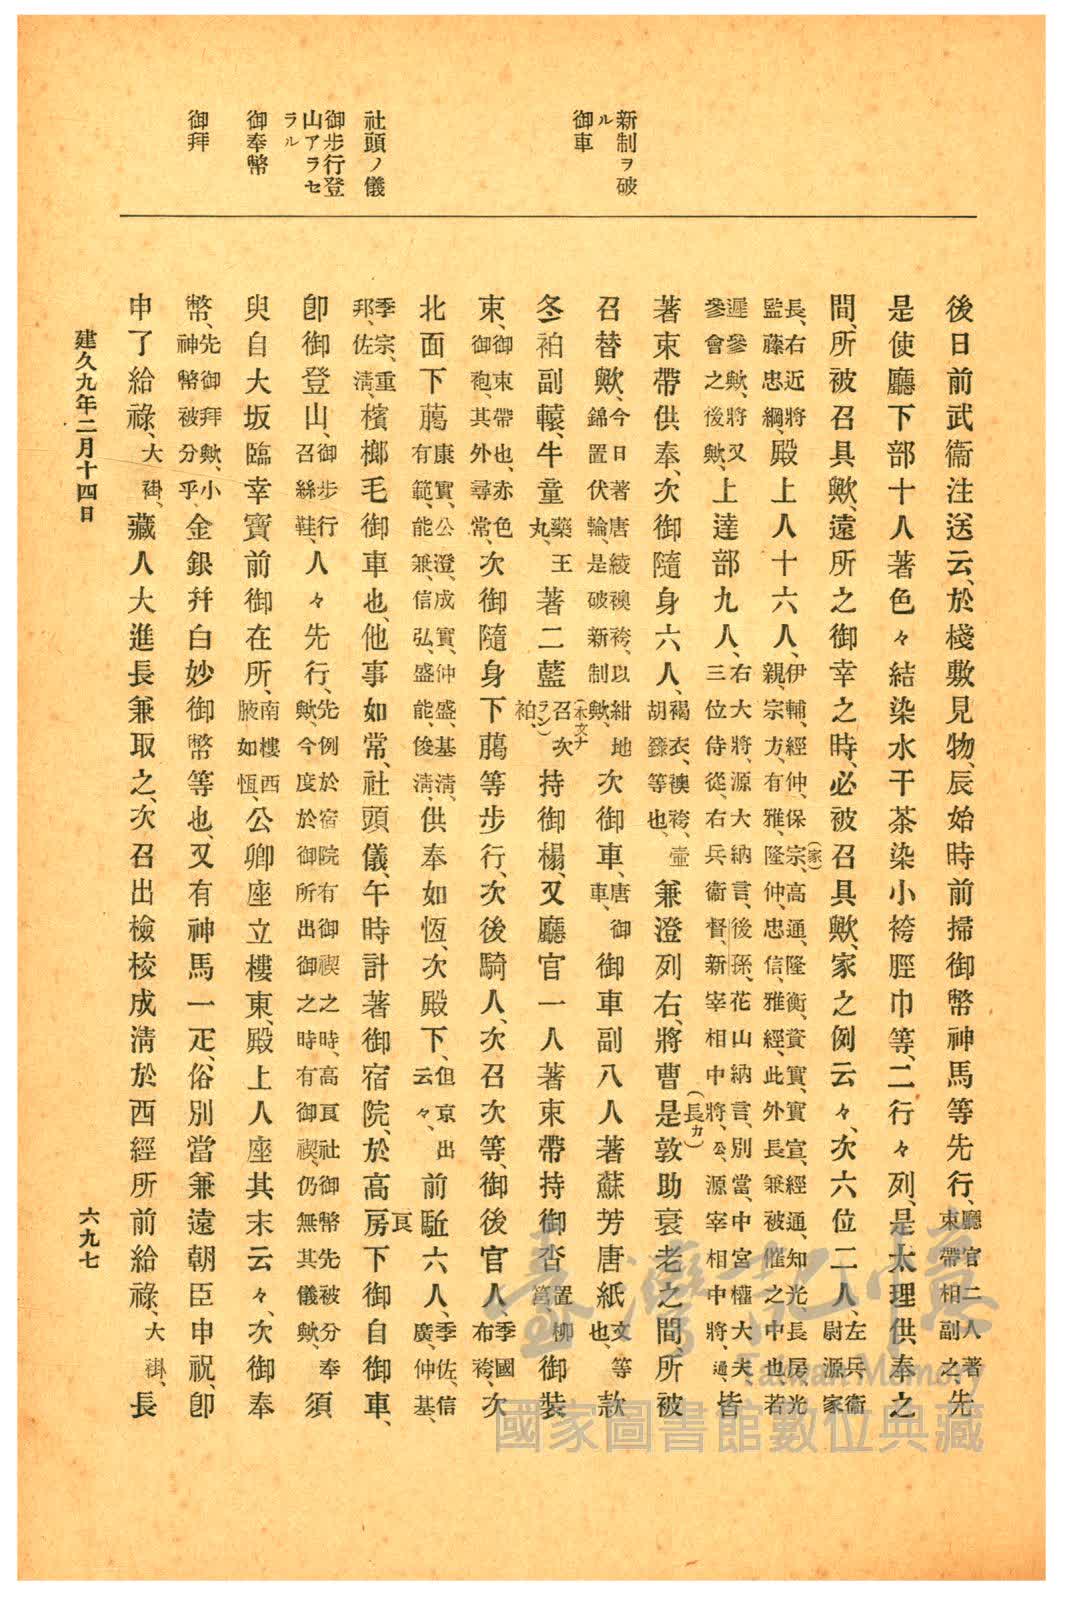 新制ヲ破
ル
御車
社頭ノ儀
御步行登
山アラセ
ラル
御奉幣
御拜
後日前武衞注送云、於棧敷見物、辰始時前掃御幣神馬等先行、廳官二人著束帶相副之、先
是使廳下部十人著色々結染水干茶染小袴脛巾等、二行々列、是太理供奉之
間、所被召具歟、遠所之御幸之時、必被召具歟、家之例云々、次六位二人、左兵衞尉源家
長、右近將監藤忠綱、殿上人十六人、伊輔、經仲、保宗、(家)高通、隆衡、資實、實宣、經通、知光、長房、光親、宗方、有雅、隆仲、忠信、雅經、此外長兼被催之中也、若
遲參歟、將又參會之後歟、上達部九人、右大將、源大納言、後孫、花山納言、別當、中宮權大夫三位侍從、右兵衞督、新宰相中將、公、源宰相中將、通、皆
著束帶供奉、次御隨身六人、褐衣、襖袴、壷胡籙等也、兼澄列右、將曹是(長カ)敦助衰老之間、所被
召替歟、今日著唐綾襖袴、以紺地錦置伏輪、是破新制歟、次御車、唐御車、御車副八人著蘇芳唐紙文等也、款
冬袙副轅、牛童藥王丸、著二藍(本文ナラン)召次袙、持御榻、又廳官一人著束帶持御沓置柳筥、御裝
束、御束帶也、赤色御袍、其外尋常、次御隨身下﨟等步行、次後騎人、次召次等、御後官人、季國布袴、次
北面下﨟康實、公澄、成實、仲盛、基淸、有範、能兼、信弘、盛能、俊淸、供奉如恆、次殿下、但京出云々、前駈六人、季佐、信廣、仲基、
季宗、重邦、佐淸、檳榔毛御車也、他事如常、社頭儀、午時計著御宿院、於高房良下御自御車、
卽御登山、御步行召絲鞋、人々先行、先例於宿院有御禊之時、高良社御幣先被分奉歟、今度於御所出御之時有御禊、仍無其儀歟、須
臾自大坂臨幸寶前御在所、南樓西腋如恆、公卿座立樓東、殿上人座其末云々、次御奉
幣、先御拜歟、小神幣被分乎、金銀幷白妙御幣等也、又有神馬一疋、俗別當兼遠朝臣申祝、卽
申了給祿、大褂、藏人大進長兼取之、次召出檢校成淸於西經所前給祿、大褂、長
建久九年二月十四日
六九七
臺灣記憶
Taiwan Memory
國家圖書館數位典藏